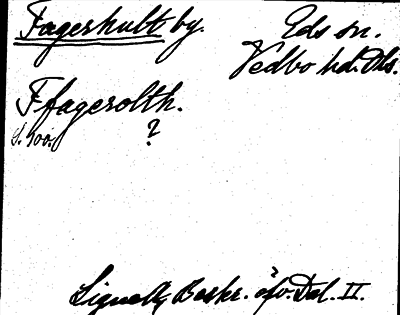 Fagerhult by. Eds sn.
Vedbo hd. Dls.
Ffagerolth.
S. 400. ?
Lignell, Beskr. öfv. Dal. II.